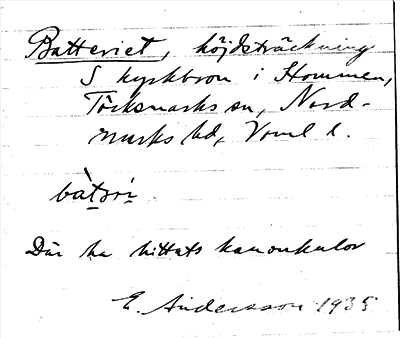 Batteriet, höjdsträckning
S kyrkbron i Hommen,
Töcksmarks sn, Nord-
marks hd, Vrml l.
Där ha hittats kanonkulor
E. Andersson 1935